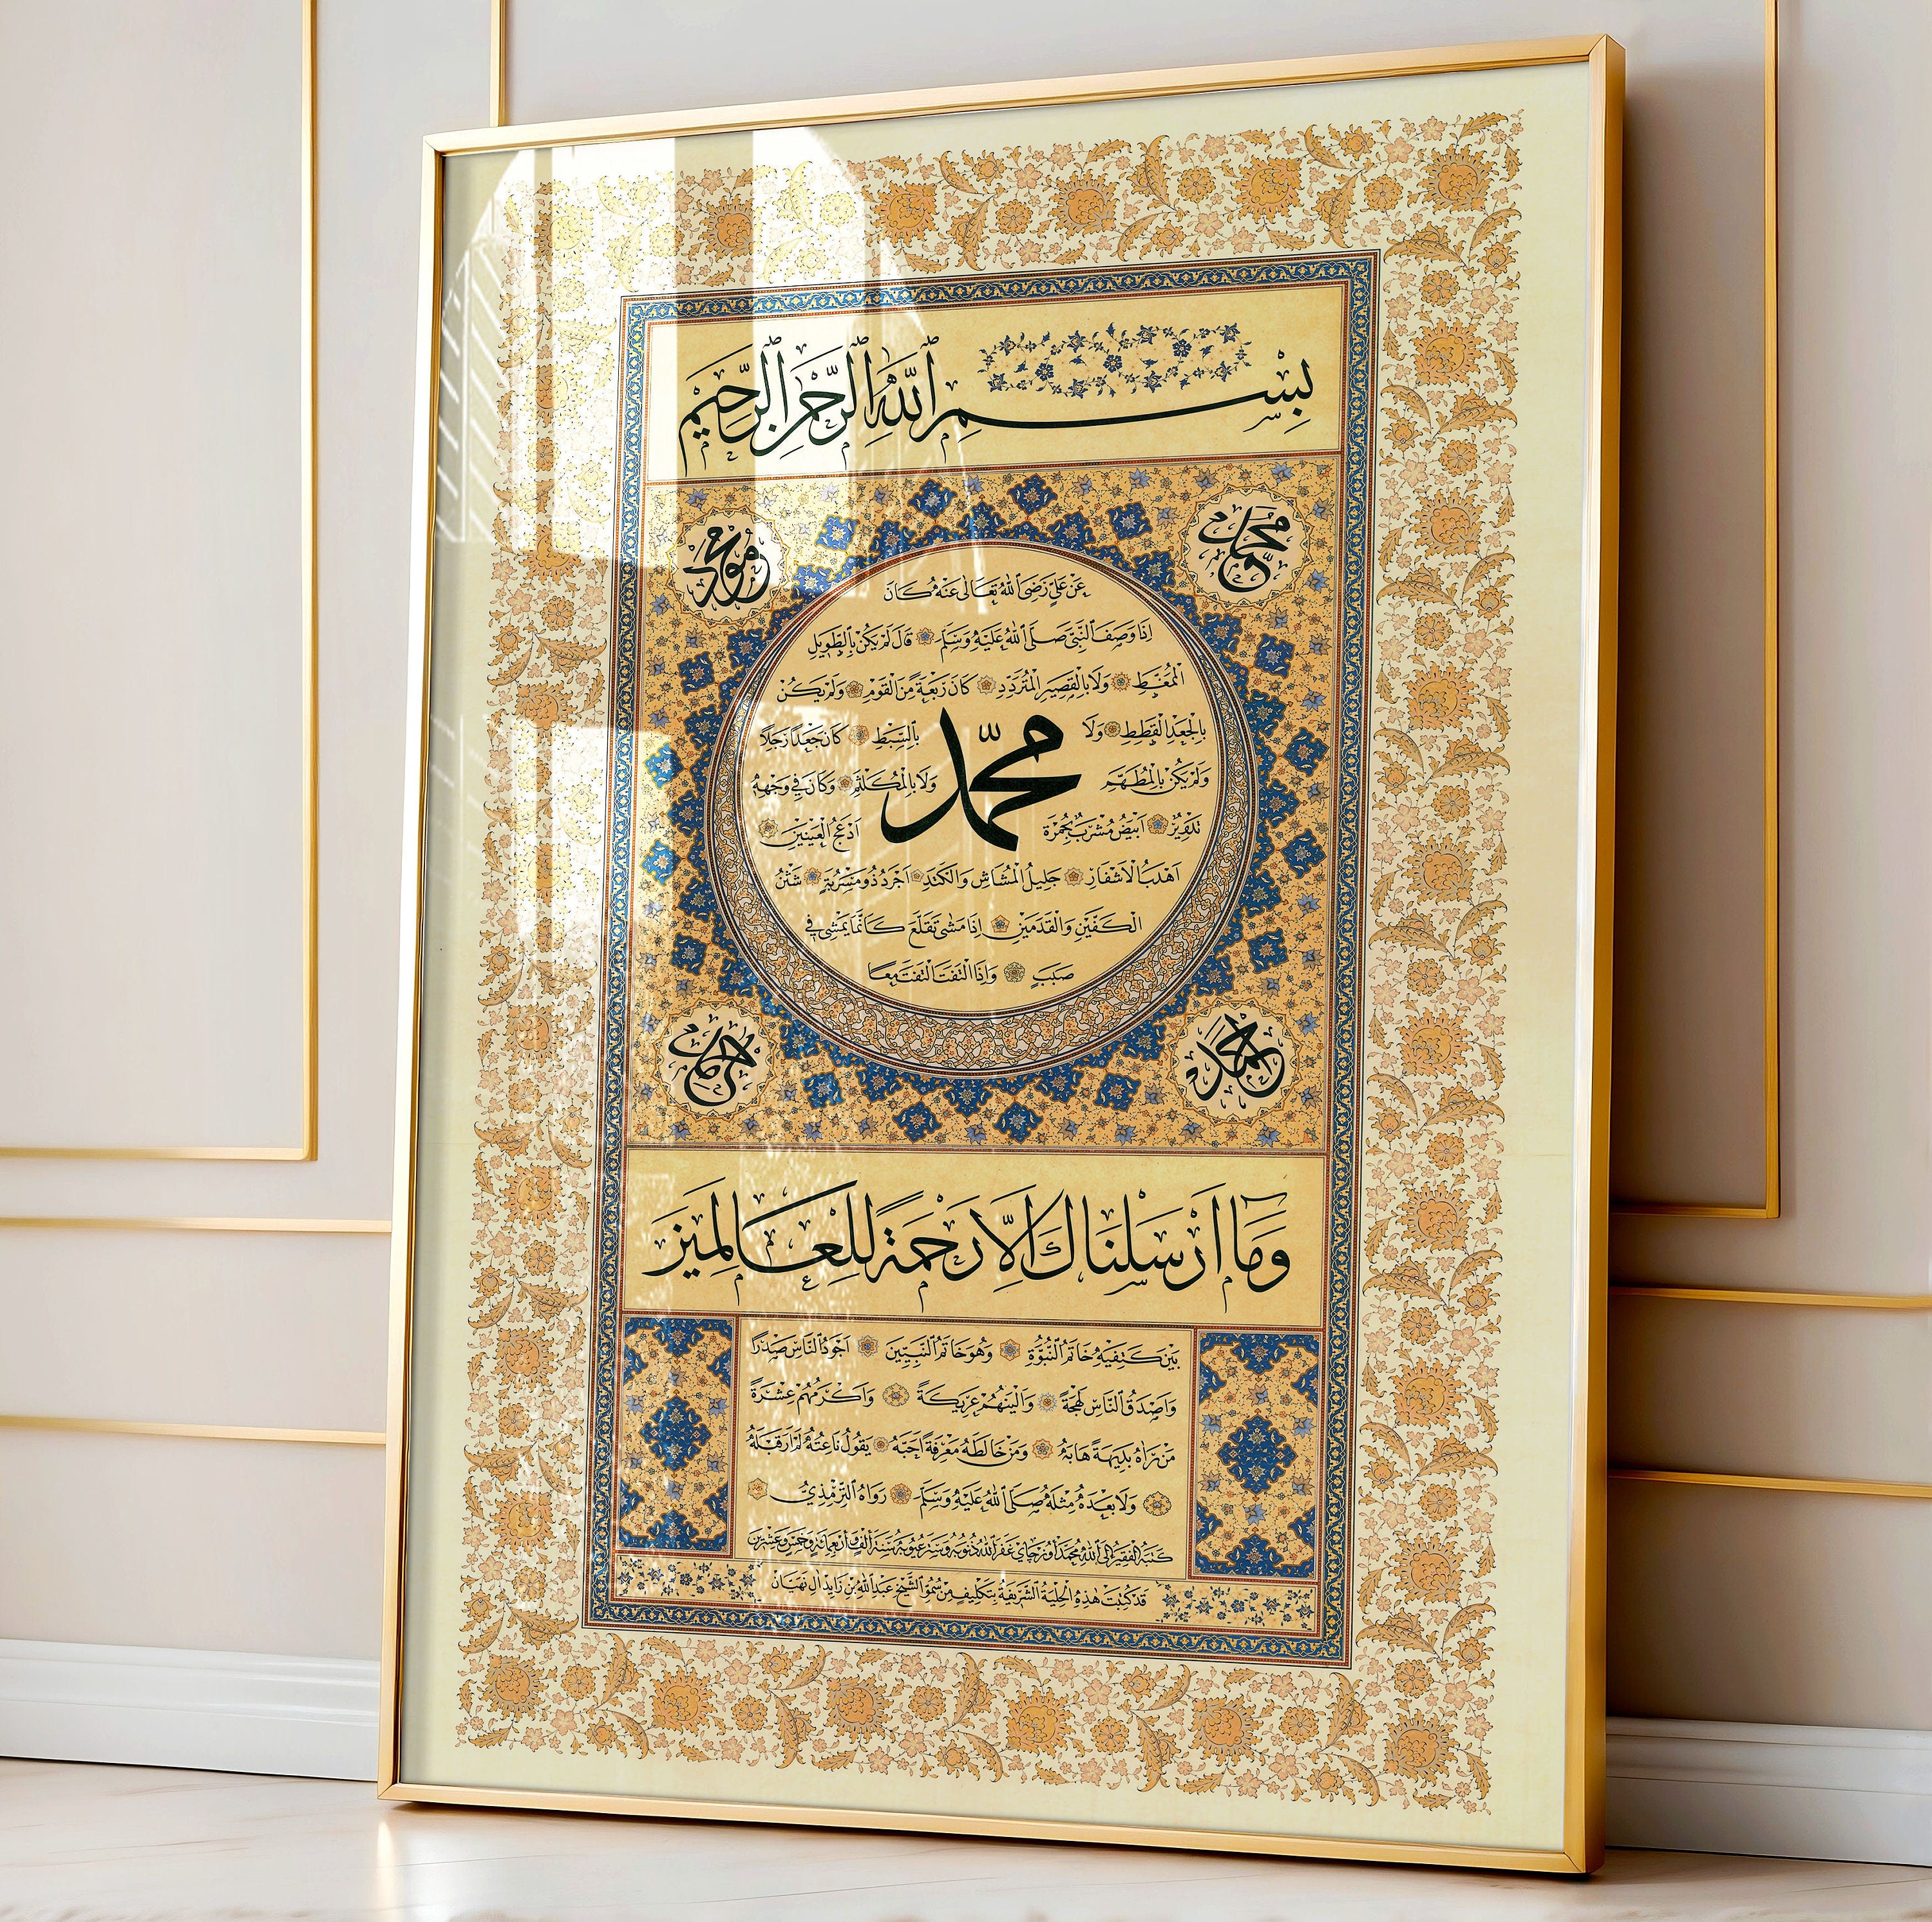 بِسْمِ اللّٰهِ الرَّحْمٰنِ الرَّحِيمِ
محمد
محمود
عَنْ عَلِيٍّ رَضِيَ اللّٰهُ تَعَالٰى عَنْهُ كَانَ
اِذَا وَصَفَ النَّبِيَّ صَلَّى اللّٰهُ عَلَيْهِ وَسَلَّمَ قَالَ لَمْ يَكُنْ بِالطَّوِيلِ
الْمُمَّغِطِ وَلَا بِالْقَصِيرِ الْمُتَرَدِّدِ كَانَ رَبْعَةً مِنَ الْقَوْمِ وَلَمْ يَكُنْ
بِالْجَعْدِ الْقَطِطِ وَلَا بِالسَّبْطِ كَانَ جَعْدًا رَجِلًا
محمد
وَلَمْ يَكُنْ بِالْمُطَهَّمِ وَلَا بِالْمُكَلْثَمِ وَكَانَ فِي وَجْهِهِ
تَدْوِيرٌ اَبْيَضُ مُشْرَبٌ بِحُمْرَةٍ اَدْعَجُ الْعَيْنَيْنِ
اَهْدَبُ الْاَشْفَارِ جَلِيلُ الْمُشَاشِ وَالْكَتَدِ اَجْرَدُ ذُو مَسْرُبَةٍ شَثْنُ
الْكَفَّيْنِ وَالْقَدَمَيْنِ اِذَا مَشٰى تَقَلَّعَ كَاَنَّمَا يَمْشِي فِي
صَبَبٍ وَاِذَا الْتَفَتَ الْتَفَتَ مَعًا
احمد
وَمَا اَرْسَلْنَاكَ اِلَّا رَحْمَةً لِلْعَالَمِينَ
بَيْنَ كَتِفَيْهِ خَاتَمُ النُّبُوَّةِ وَهُوَ خَاتَمُ النَّبِيِّينَ اَجْوَدُ النَّاسِ صَدْرًا
وَاَصْدَقُ النَّاسِ لَهْجَةً وَاَلْيَنُهُمْ عَرِيكَةً وَاَكْرَمُهُمْ عِشْرَةً
مَنْ رَآهُ بَدِيهَةً هَابَهُ وَمَنْ خَالَطَهُ مَعْرِفَةً اَحَبَّهُ يَقُولُ نَاعِتُهُ لَمْ اَرَ قَبْلَهُ
وَلَا بَعْدَهُ مِثْلَهُ صَلَّى اللّٰهُ عَلَيْهِ وَسَلَّمَ رَوَاهُ التِّرْمِذِيُّ
كَتَبَهُ الْفَقِيرُ اِلَى اللّٰهِ مُحَمَّد اُوزْجَاي غَفَرَ اللّٰهُ ذُنُوبَهُ وَسَتَرَ عُيُوبَهُ سَنَةَ اَلْفٍ وَاَرْبَعِمِائَةٍ وَخَمْسٍ وَعِشْرِينَ
قَدْ كُتِبَتْ هٰذِهِ الْحِلْيَةُ الشَّرِيفَةُ بِتَكْلِيفٍ مِنْ سُمُوِّ الشَّيْخِ عَبْدِ اللّٰهِ بْنِ زَايِدٍ اٰلِ نَهْيَان